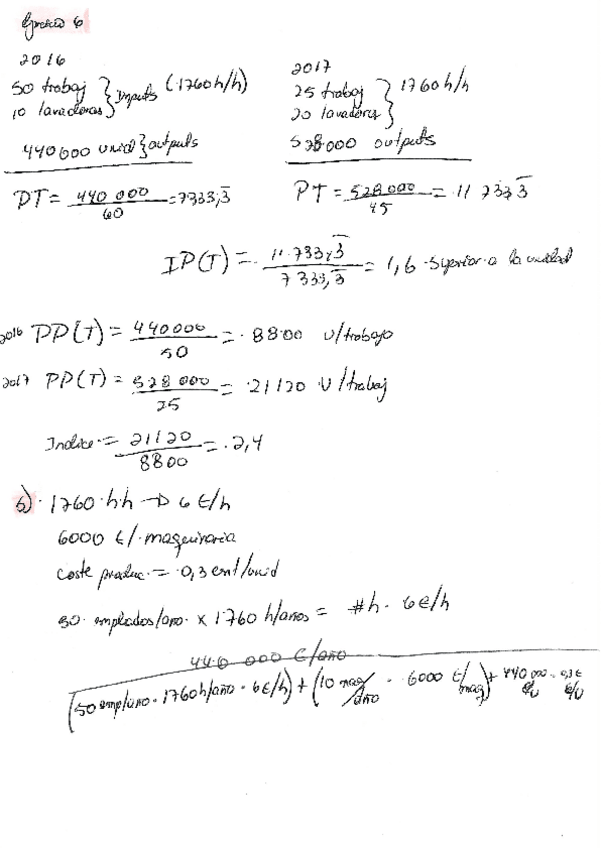 Ejercicio 6
2016
50 trabaj
10 lavadoras } Inputs (1760 h/h)
440000 unid } outputs
PT = 440 000 / 60 = 7333,3
2017
25 trabaj
20 lavadoras } 1760 h/h
528000 outputs
PT = 528 000 / 45 = 11 733,3
IP(T) = 11 733,3 / 7 333,3 = 1,6 Superior a la unidad
2016 PP(T) = 440000 / 50 = 8800 u/trabajo
2017 PP(T) = 528 000 / 25 = 21120 u/trabaj
Indice = 21120 / 8800 = 2,4
b) 1760 h.h → 6 €/h
6000 €/ maquinaria
coste produc. = 0,3 cent/unid
50 emplados/año x 1760 h/años = #h · 6 €/h
440 000 €/año
(50 emp/año · 1760 h/año · 6 €/h) + (10 maq/año · 6000 €/maq) + 440 000 · 0,3 €